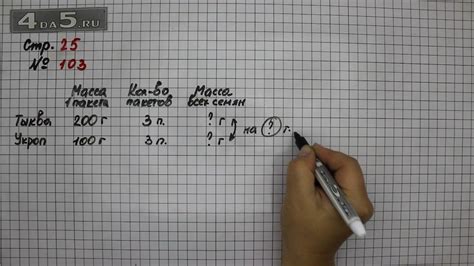 4DA5.RU
Стр. 25
№ 103
Масса Кол-во Масса
1 пакета пакетов всех семян
Тыква 200 г 3 п. ? г
на ? г.
Укроп 100 г 3 п. ? г